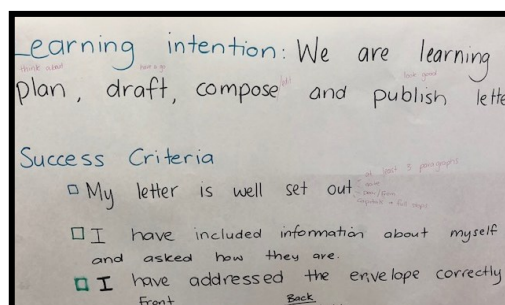 Learning intention: We are learning
think about have a go look good
plan, draft, compose and publish lette
Success Criteria
at least 3 paragraphs
My letter is well set out
capitals + full stops
I have included information about myself
and asked how they are.
I have addressed the envelope correctly
Front Back